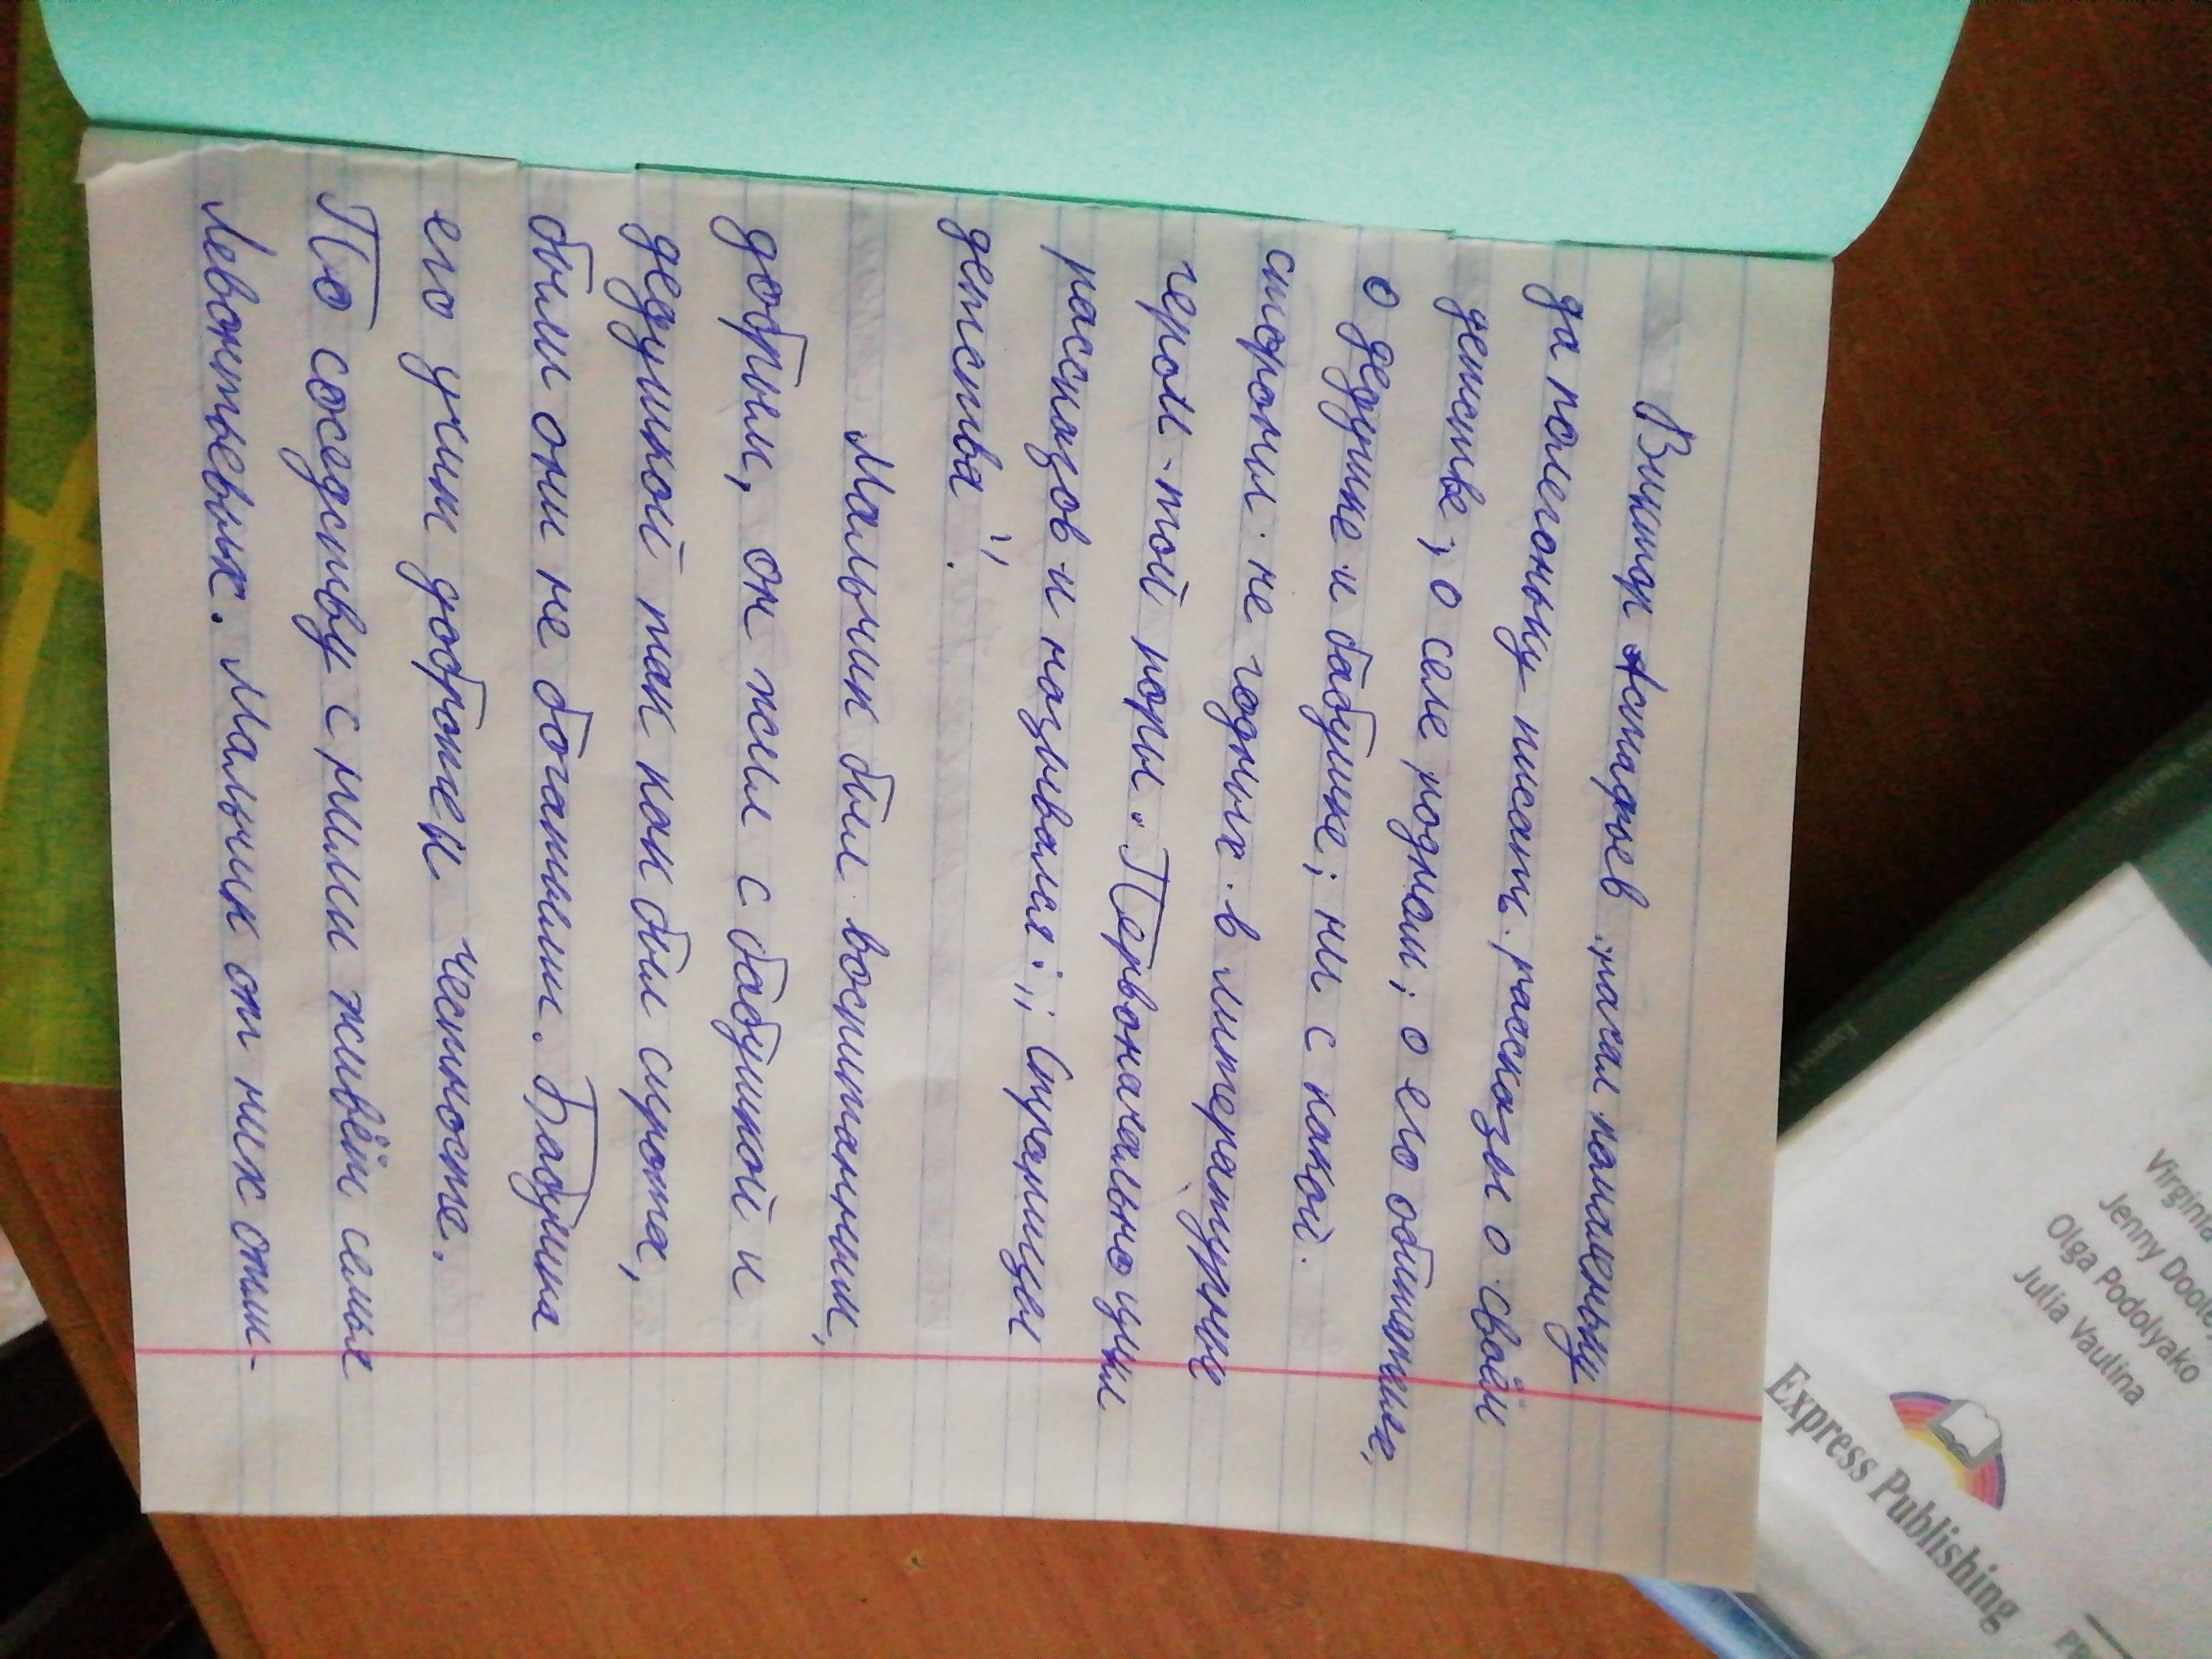 Виктор Астафьев начал помаленьку
да полегоньку писать рассказы о своём
детстве; о селе родном; о его обитателе,
о дедушке и бабушке; ни с какой.
стороны не годных в литературные
герои той поры. Первоначально цикл
рассказов и назывался: „Страницы
детства".
Мальчик был воспитанник,
добрым, он жил с бабушкой и
дедушкой так как был сирота,
были они не богатыми. Бабушка
его учит доброте и честносте.
По соседству с ними живёт семья
Левонтьевых. Мальчик от них отли-
Virginia
Jenny Dooley
Olga Podolyako
Julia Vaulina
Express Publishing